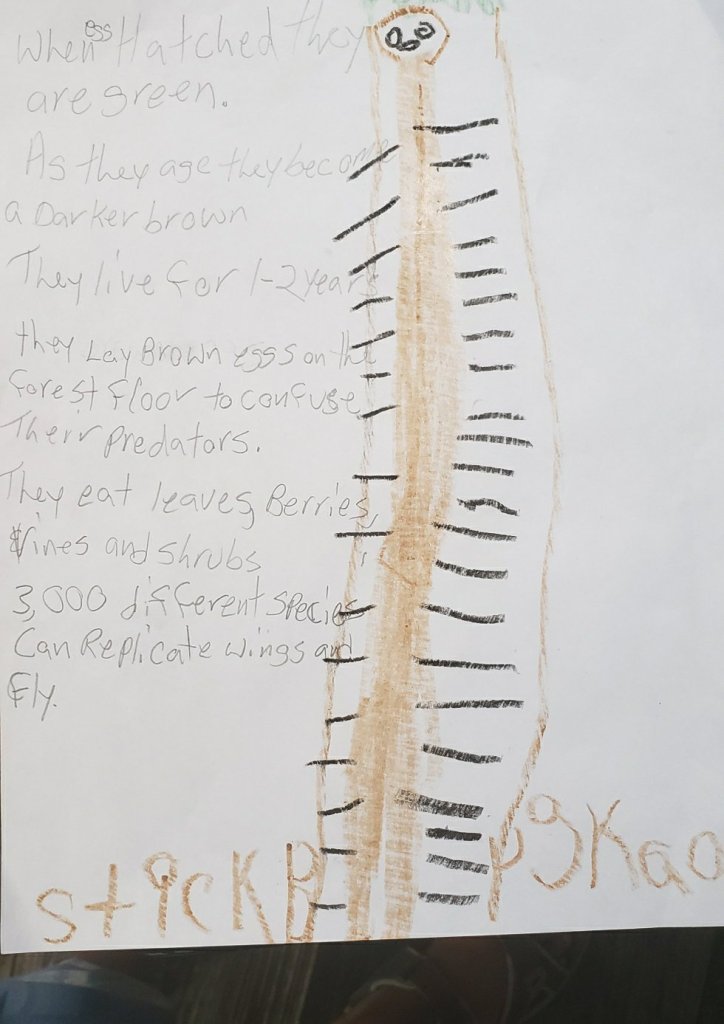 When egg Hatched they
are green.
As they age they become
a Darker brown
They live for 1-2 years
they Lay Brown eggs on the
forest floor to confuse
Their predators.
They eat leaves, Berries,
Vines and shrubs
3,000 different species
Can Replicate wings and
Fly.
stick B